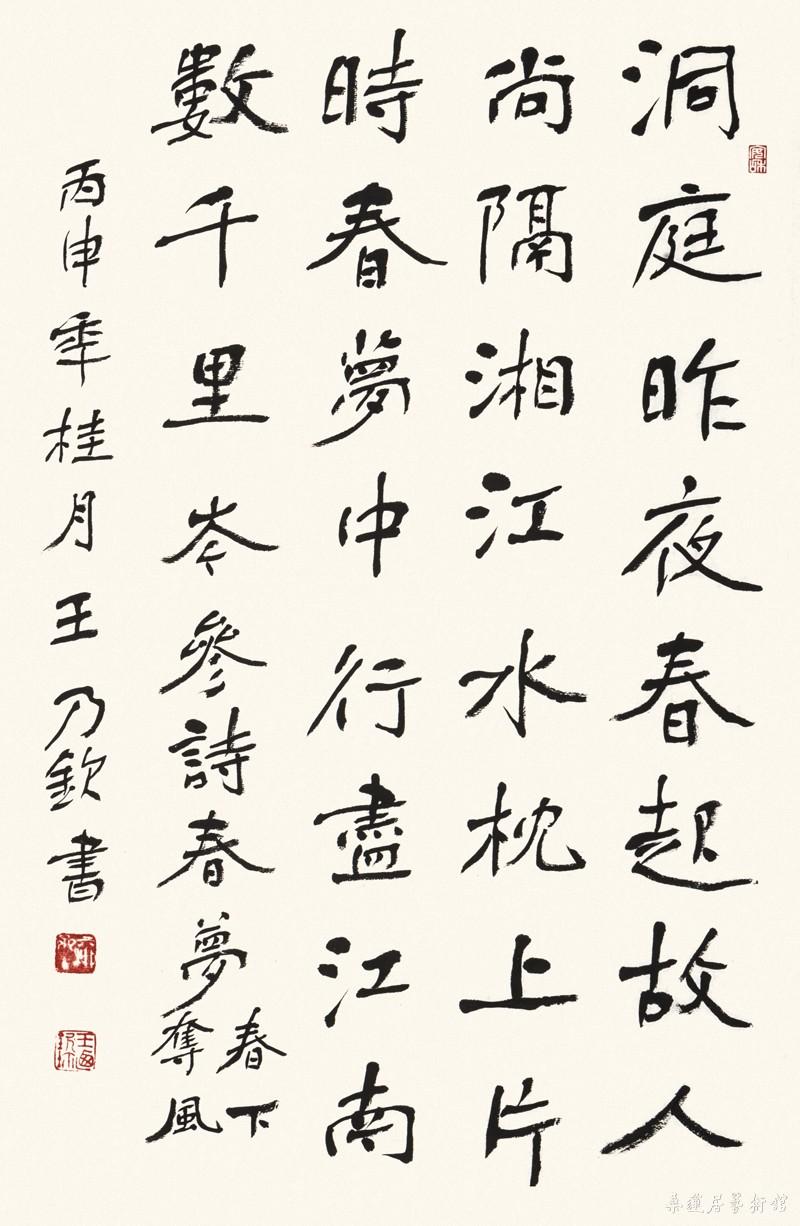 洞庭昨夜春起故人
尚隔湘江水枕上片
時春夢中行盡江南
數千里岑參詩春夢
春下
奪風
丙申年桂月王乃欽書
藥蓮居藝術館